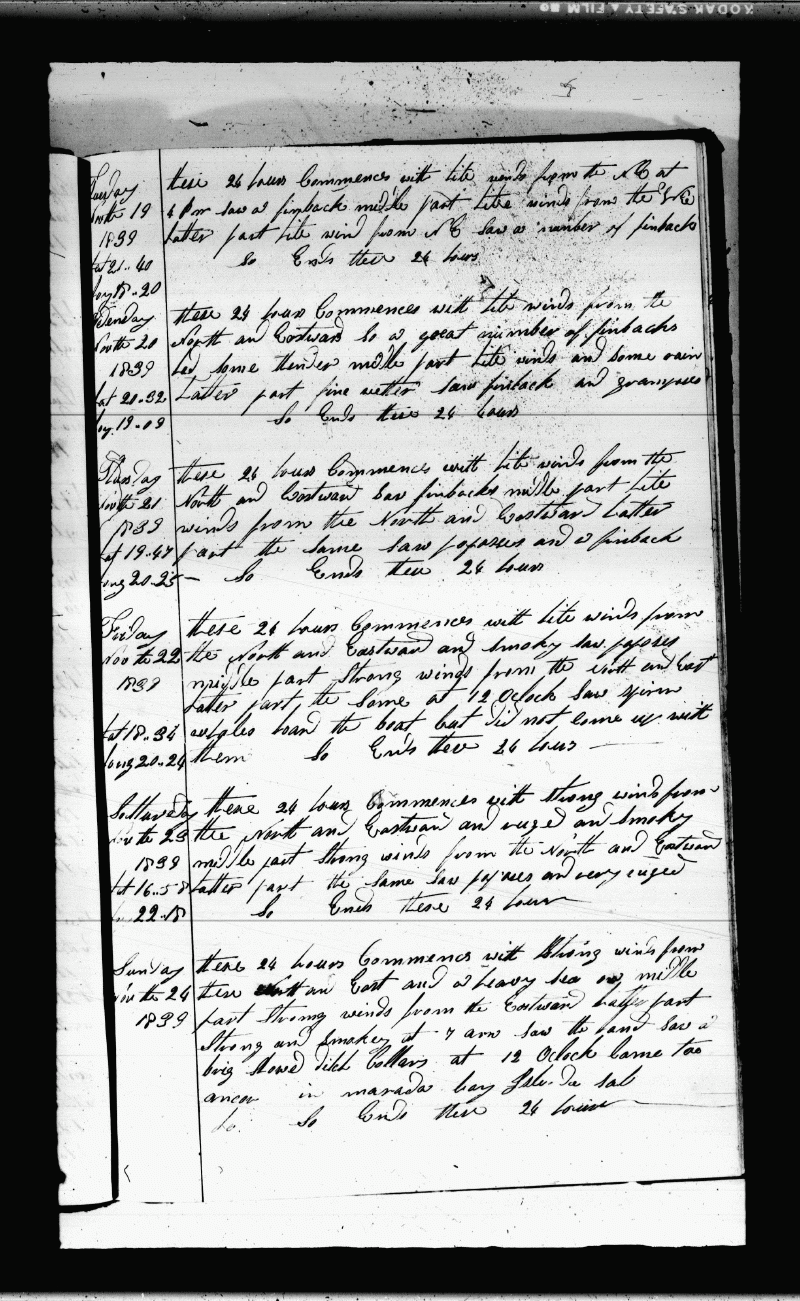 KODAK SAFETY FILM
Tuesday
Nov the 19
1839
Lat 21-40
Long 18-20
these 24 hours Commences with lite winds from the NE at
4 Pm saw a finback middle part lite winds from the
Latter part lite wind from NE Saw a number of finback
So Ends these 24 hours
Wenday
Nov the 20
1839
Lat 20-32
Long 19-09
these 24 hours Commences with lite winds from the
North and Eastward So a great number of finbacks
had some thunder middle part lite winds and some rain
Latter part fine wether saw finback and grampuses
So Ends these 24 hours
Thursday
Nov the 21
1839
Lat 19-47
Long 20-25
these 24 hours Commences with lite winds from the
North and Eastward Saw finbacks midle part lite
winds from the North and Eastward Latter
part the same saw poposes and a finback
So Ends these 24 hours
Friday
Nov the 22
1839
Lat 18-34
Long 20-24
these 24 hours Commences with lite winds from
the North and Eastward and smoky saw poposes
middle part Strong winds from the North and East
Later part the Same at 12 Oclock Saw sperm
whales the boat but did not come up with
them So Ends these 24 hours
Satturday
Nov the 23
1839
Lat 16-58
22-18
these 24 hours Commences with strong winds from
the North and Eastward and ruged and Smoky
middle part Strong winds from the North and Eastward
Latter part the Same saw poposes and very ruged
So Ends these 24 hours
Sunday
Nov the 24
1839
these 24 hours Commences with Strong winds from
these North an East and a heavy sea on middle
part Strong winds from the Eastward Latter part
Strong and smokey at 7 am saw the land Saw a
brig Stowd at 12 Oclock Came too
ancor in marada bay Sal
So Ends these 24 hours